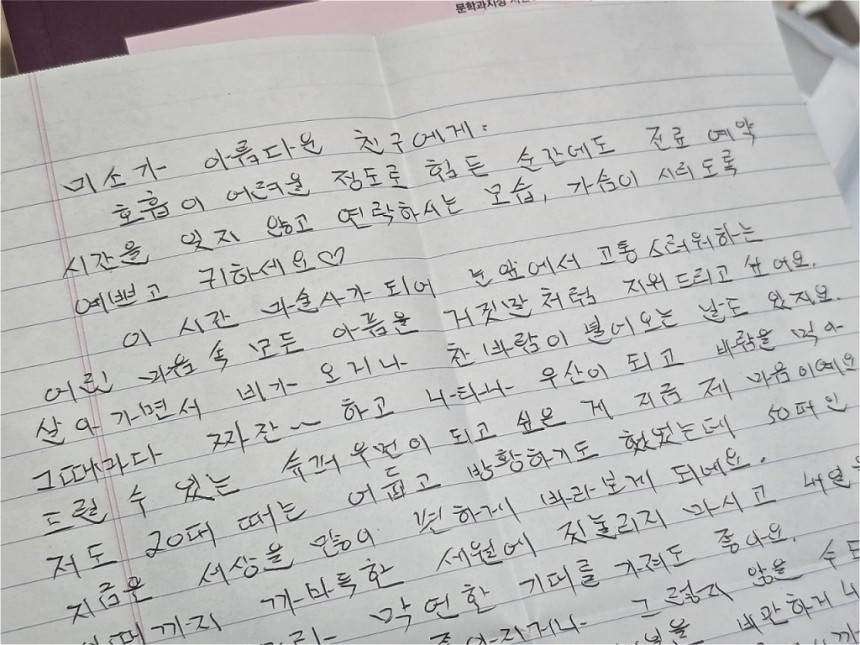 문학과지성
미소가 아름다운 친구에게:
호흡이 어려울 정도로 힘든 순간에도 진료 예약
시간을 잊지 않고 연락하시는 모습, 가슴이 시리도록
예쁘고 귀하세요♡
이 시간 마술사가 되어 눈 앞에서 고통스러워하는
어린 마음 속 모든 아픔을 거짓말처럼 지워드리고 싶어요.
살아가면서 비가 오거나 찬 바람이 불어오는 날도 있지요.
그때마다 짜잔~ 하고 나타나 우산이 되고 바람을 막아
드릴 수 있는 슈퍼우먼이 되고 싶은 게 지금 제 마음이예요
저도 20대 때는 어둡고 방황하기도 했었는데 50퍼인
지금은 세상을 많이 편하게 바라보게 되네요.
까지 까마득한 세월에 짓눌리지 마시고 내일
막연한 기대를 가져도 좋아요.
그렇지 않을 수도
비관하거나